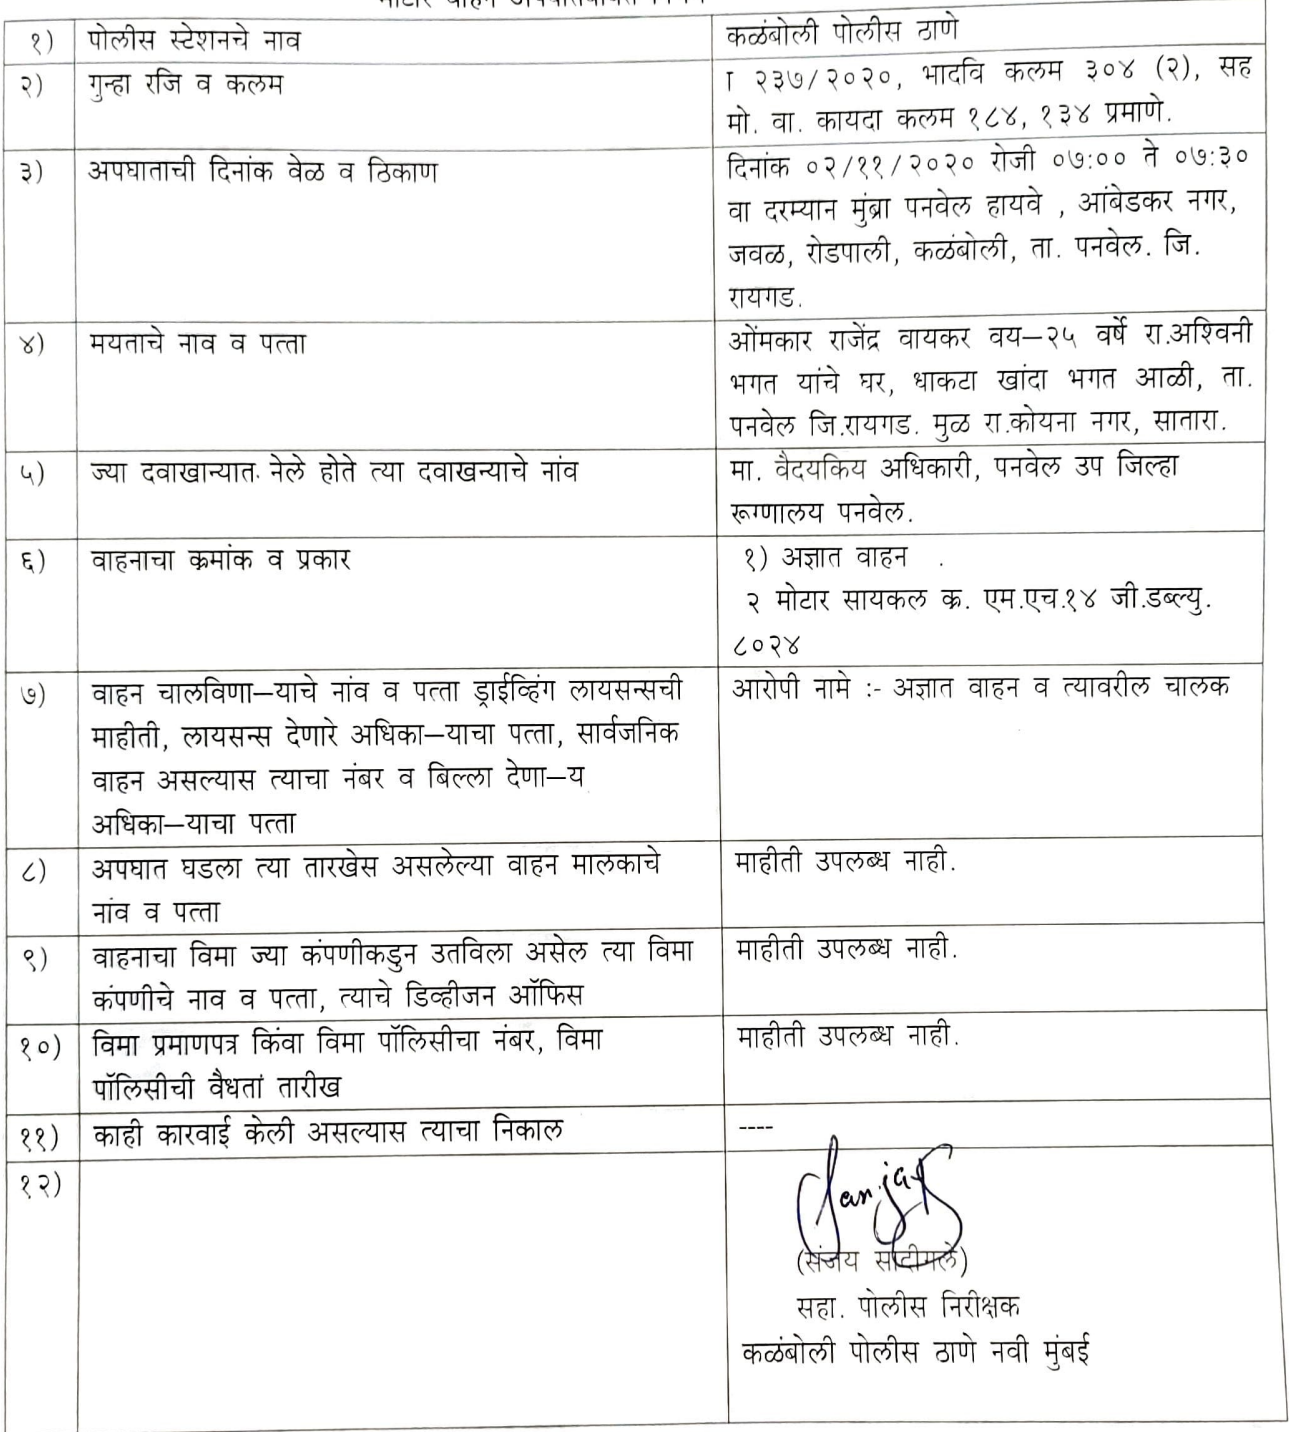 १) पोलीस स्टेशनचे नाव
कळंबोली पोलीस ठाणे
२) गुन्हा रजि व कलम
I २३७/२०२०, भादवि कलम ३०४ (२), सह
मो. वा. कायदा कलम १८४, १३४ प्रमाणे.
३) अपघाताची दिनांक वेळ व ठिकाण
दिनांक ०२/११/२०२० रोजी ०७:०० ते ०७:३०
वा दरम्यान मुंब्रा पनवेल हायवे , आंबेडकर नगर,
जवळ, रोडपाली, कळंबोली, ता. पनवेल. जि.
रायगड.
४) मयताचे नाव व पत्ता
ओंमकार राजेंद्र वायकर वय–२५ वर्षे रा.अश्विनी
भगत यांचे घर, धाकटा खांदा भगत आळी, ता.
पनवेल जि.रायगड. मुळ रा.कोयना नगर, सातारा.
५) ज्या दवाखान्यात नेले होते त्या दवाखन्याचे नांव
मा. वैदयकिय अधिकारी, पनवेल उप जिल्हा
रूग्णालय पनवेल.
६) वाहनाचा क्रमांक व प्रकार
१) अज्ञात वाहन .
२ मोटार सायकल क्र. एम.एच.१४ जी.डब्ल्यु.
८०२४
७) वाहन चालविणा–याचे नांव व पत्ता ड्राईव्हिंग लायसन्सची
माहीती, लायसन्स देणारे अधिका–याचा पत्ता, सार्वजनिक
वाहन असल्यास त्याचा नंबर व बिल्ला देणा–य
अधिका–याचा पत्ता
आरोपी नामे :- अज्ञात वाहन व त्यावरील चालक
८) अपघात घडला त्या तारखेस असलेल्या वाहन मालकाचे
नांव व पत्ता
माहीती उपलब्ध नाही.
९) वाहनाचा विमा ज्या कंपणीकडुन उतविला असेल त्या विमा
कंपणीचे नाव व पत्ता, त्याचे डिव्हीजन ऑफिस
माहीती उपलब्ध नाही.
१०) विमा प्रमाणपत्र किंवा विमा पॉलिसीचा नंबर, विमा
पॉलिसीची वैधतां तारीख
माहीती उपलब्ध नाही.
११) काही कारवाई केली असल्यास त्याचा निकाल
----
१२)
(संजय सादीमले)
सहा. पोलीस निरीक्षक
कळंबोली पोलीस ठाणे नवी मुंबई